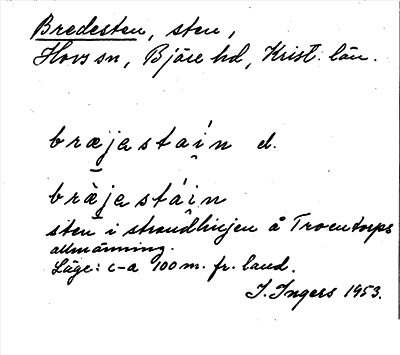 Bredesten, sten,
Hovs sn, Bjäre hd, Krist. län.
bræjastáin d.
bræ̀jastáin
sten i strandlinjen å Troentorps
allmänning.
Läge: c-a 100 m. fr. land.
I. Ingers 1953.